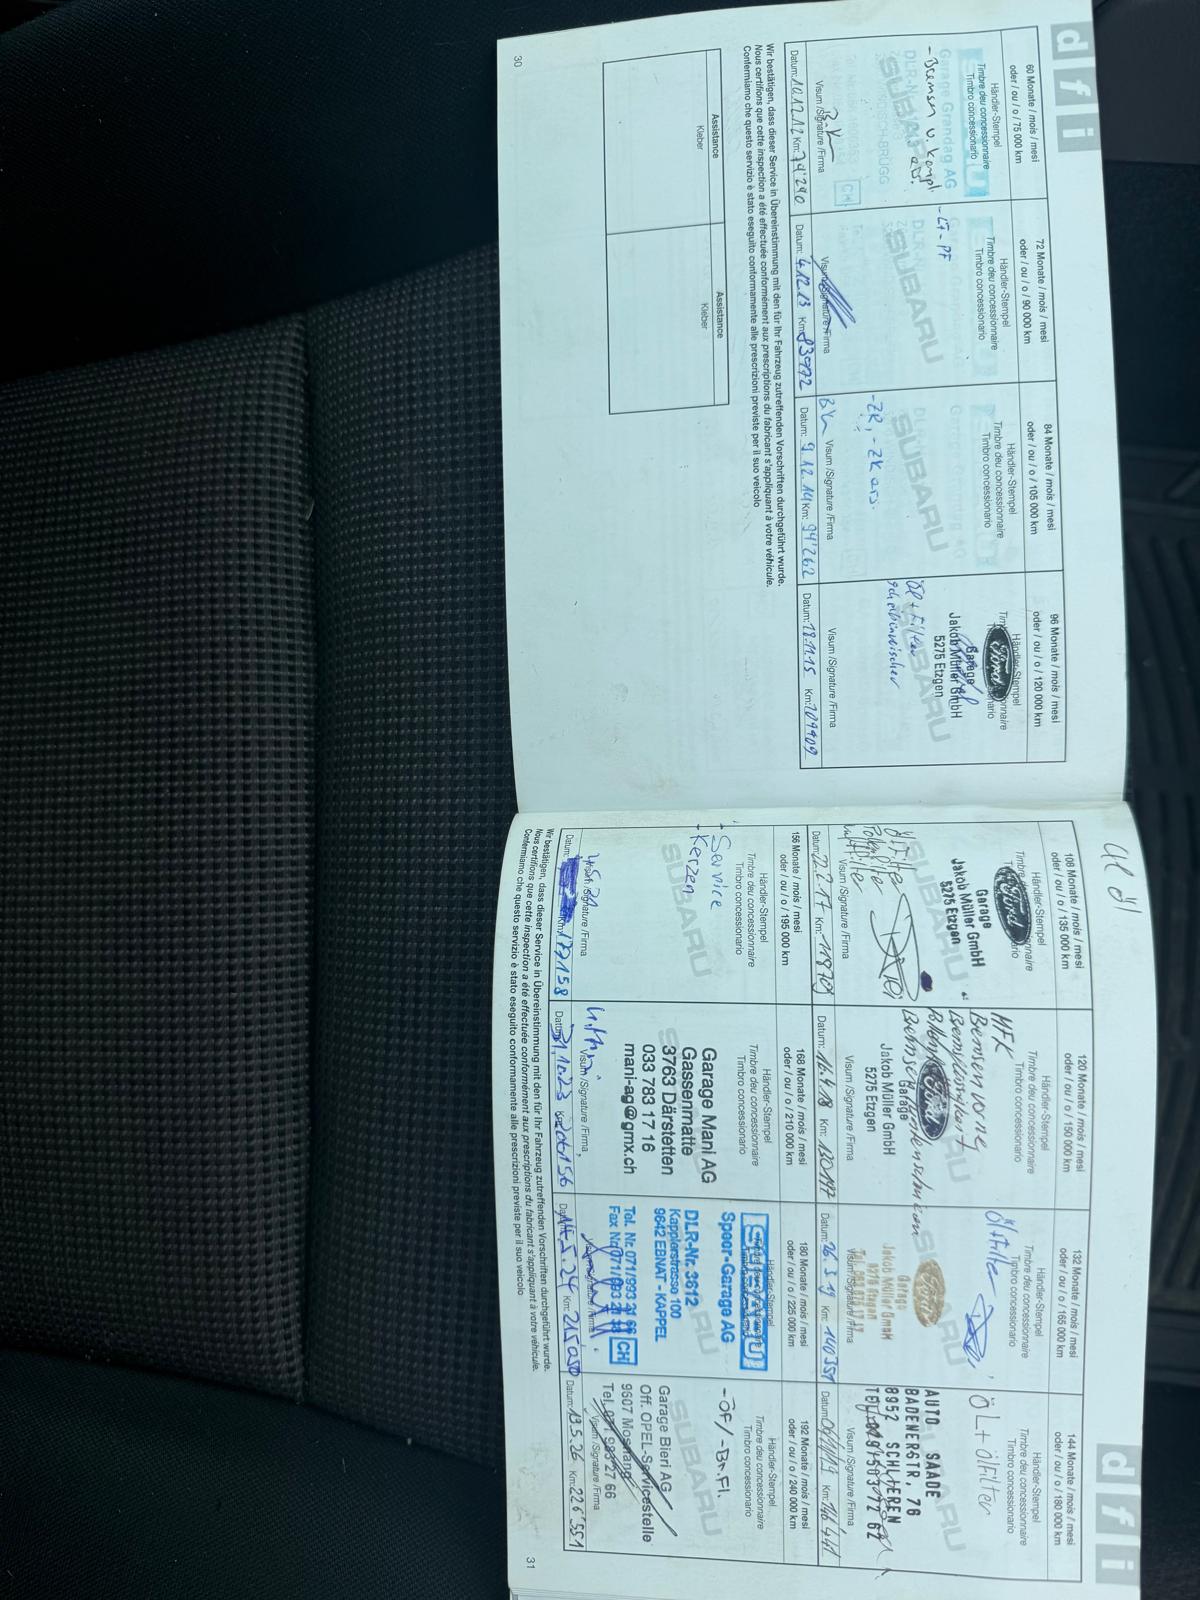 d f i
60 Monate / mois / mesi
oder / ou / o / 75 000 km
Händler-Stempel
Timbre deu concessionnaire
Timbro concessionario
Garage Grandag AG
SUBARU
- Bremsen v. kompl.
ers.
Visum /Signature /Firma
Datum: 10.12.12 Km: 74'290
72 Monate / mois / mesi
oder / ou / o / 90 000 km
Händler-Stempel
Timbre deu concessionnaire
Timbro concessionario
SUBARU
- LF - PF
Visum /Signature /Firma
Datum: 4.12.13 Km: 83972
84 Monate / mois / mesi
oder / ou / o / 105 000 km
Händler-Stempel
Timbre deu concessionnaire
Timbro concessionario
SUBARU
- ZR, - ZK ers.
Visum /Signature /Firma
Datum: 9.12.14 Km: 94'262
96 Monate / mois / mesi
oder / ou / o / 120 000 km
Händler-Stempel
Ford
Garage
Jakob Müller GmbH
5275 Etzgen
SUBARU
Öl + Filter
Visum /Signature /Firma
Datum: 18.11.15 Km: 109909
Wir bestätigen, dass dieser Service in Übereinstimmung mit den für Ihr Fahrzeug zutreffenden Vorschriften durchgeführt wurde.
Nous certifions que cette inspection a été effectuée conformément aux prescriptions du fabricant s'appliquant à votre véhicule.
Confermiamo che questo servizio è stato eseguito conformamente alle prescrizioni previste per il suo veicolo
Assistance
Kleber
Assistance
Kleber
30
d f i
108 Monate / mois / mesi
oder / ou / o / 135 000 km
Händler-Stempel
Ford
Garage
Jakob Müller GmbH
5275 Etzgen
SUBARU
Ölfilter
Visum /Signature /Firma
Datum: 22.2.17 Km: 118709
120 Monate / mois / mesi
oder / ou / o / 150 000 km
Händler-Stempel
Timbre deu concessionnaire
Timbro concessionario
MFK
Bremsen vorne
Ford
Garage
Jakob Müller GmbH
5275 Etzgen
Visum /Signature /Firma
Datum: 16.4.18 Km: 130197
132 Monate / mois / mesi
oder / ou / o / 165 000 km
Händler-Stempel
Timbre deu concessionnaire
Timbro concessionario
Ölfilter
Ford
Garage
Jakob Müller GmbH
5275 Etzgen
Visum /Signature /Firma
Datum: 26.3.19 Km: 140351
144 Monate / mois / mesi
oder / ou / o / 180 000 km
Händler-Stempel
Timbre deu concessionnaire
Timbro concessionario
ÖL + ölfilter
AUTO SAADE
BADENERSTR, 76
8952 SCHLIEREN
Visum /Signature /Firma
Km: 146'441
156 Monate / mois / mesi
oder / ou / o / 195 000 km
Händler-Stempel
Timbre deu concessionnaire
Timbro concessionario
SUBARU
- Service
- Kerzen
Visum /Signature /Firma
Datum: Km: 177'158
168 Monate / mois / mesi
oder / ou / o / 210 000 km
Händler-Stempel
Timbre deu concessionnaire
Timbro concessionario
Garage Mani AG
Gassenmatte
3763 Därstetten
033 783 17 16
mani-ag@gmx.ch
Visum /Signature /Firma
Datum: 31.10.23 Km: 206156
180 Monate / mois / mesi
oder / ou / o / 225 000 km
Händler-Stempel
SUBARU
Speer-Garage AG
DLR-Nr. 3312
Kapplerstrasse 100
9642 EBNAT - KAPPEL
Tel. Nr. 071/993 21 66
CH
Km: 215'050
192 Monate / mois / mesi
oder / ou / o / 240 000 km
Händler-Stempel
Timbre deu concessionnaire
Timbro concessionario
- ÖF / - Br.Fl.
SUBARU
Garage Bieri AG
Off. OPEL-Servicestelle
9607 Mosnang
Visum /Signature /Firma
Datum: 13.5.26 Km: 226'551
Wir bestätigen, dass dieser Service in Übereinstimmung mit den für Ihr Fahrzeug zutreffenden Vorschriften durchgeführt wurde.
Nous certifions que cette inspection a été effectuée conformément aux prescriptions du fabricant s'appliquant à votre véhicule.
Confermiamo che questo servizio è stato eseguito conformamente alle prescrizioni previste per il suo veicolo
31